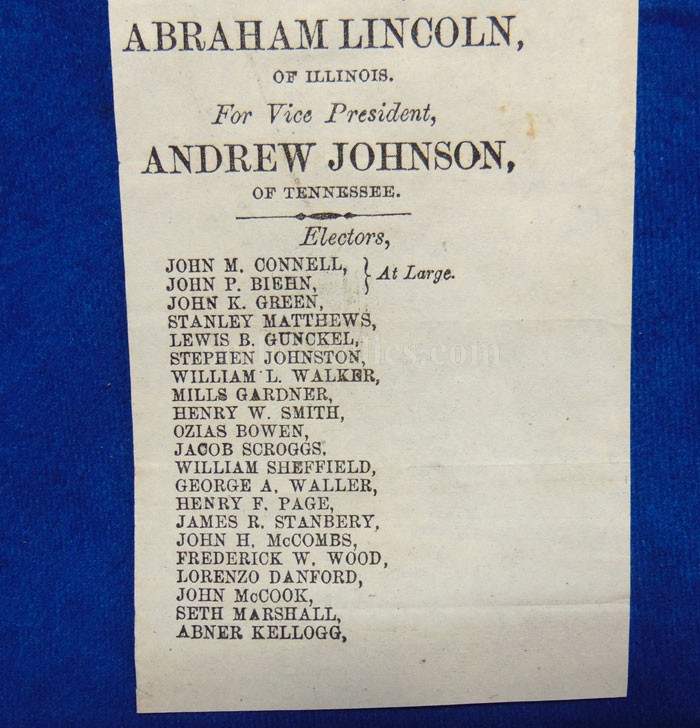 ABRAHAM LINCOLN,
OF ILLINOIS.
For Vice President,
ANDREW JOHNSON,
OF TENNESSEE.
Electors,
JOHN M. CONNELL,
JOHN P. BIEHN,
At Large.
JOHN K. GREEN,
STANLEY MATTHEWS,
LEWIS B. GUNCKEL,
STEPHEN JOHNSTON,
WILLIAM L. WALKER,
MILLS GARDNER,
HENRY W. SMITH,
OZIAS BOWEN,
JACOB SCROGGS.
WILLIAM SHEFFIELD,
GEORGE A. WALLER,
HENRY F. PAGE,
JAMES R. STANBERY,
JOHN H. McCOMBS,
FREDERICK W. WOOD,
LORENZO DANFORD,
JOHN McCOOK,
SETH MARSHALL,
ABNER KELLOGG,